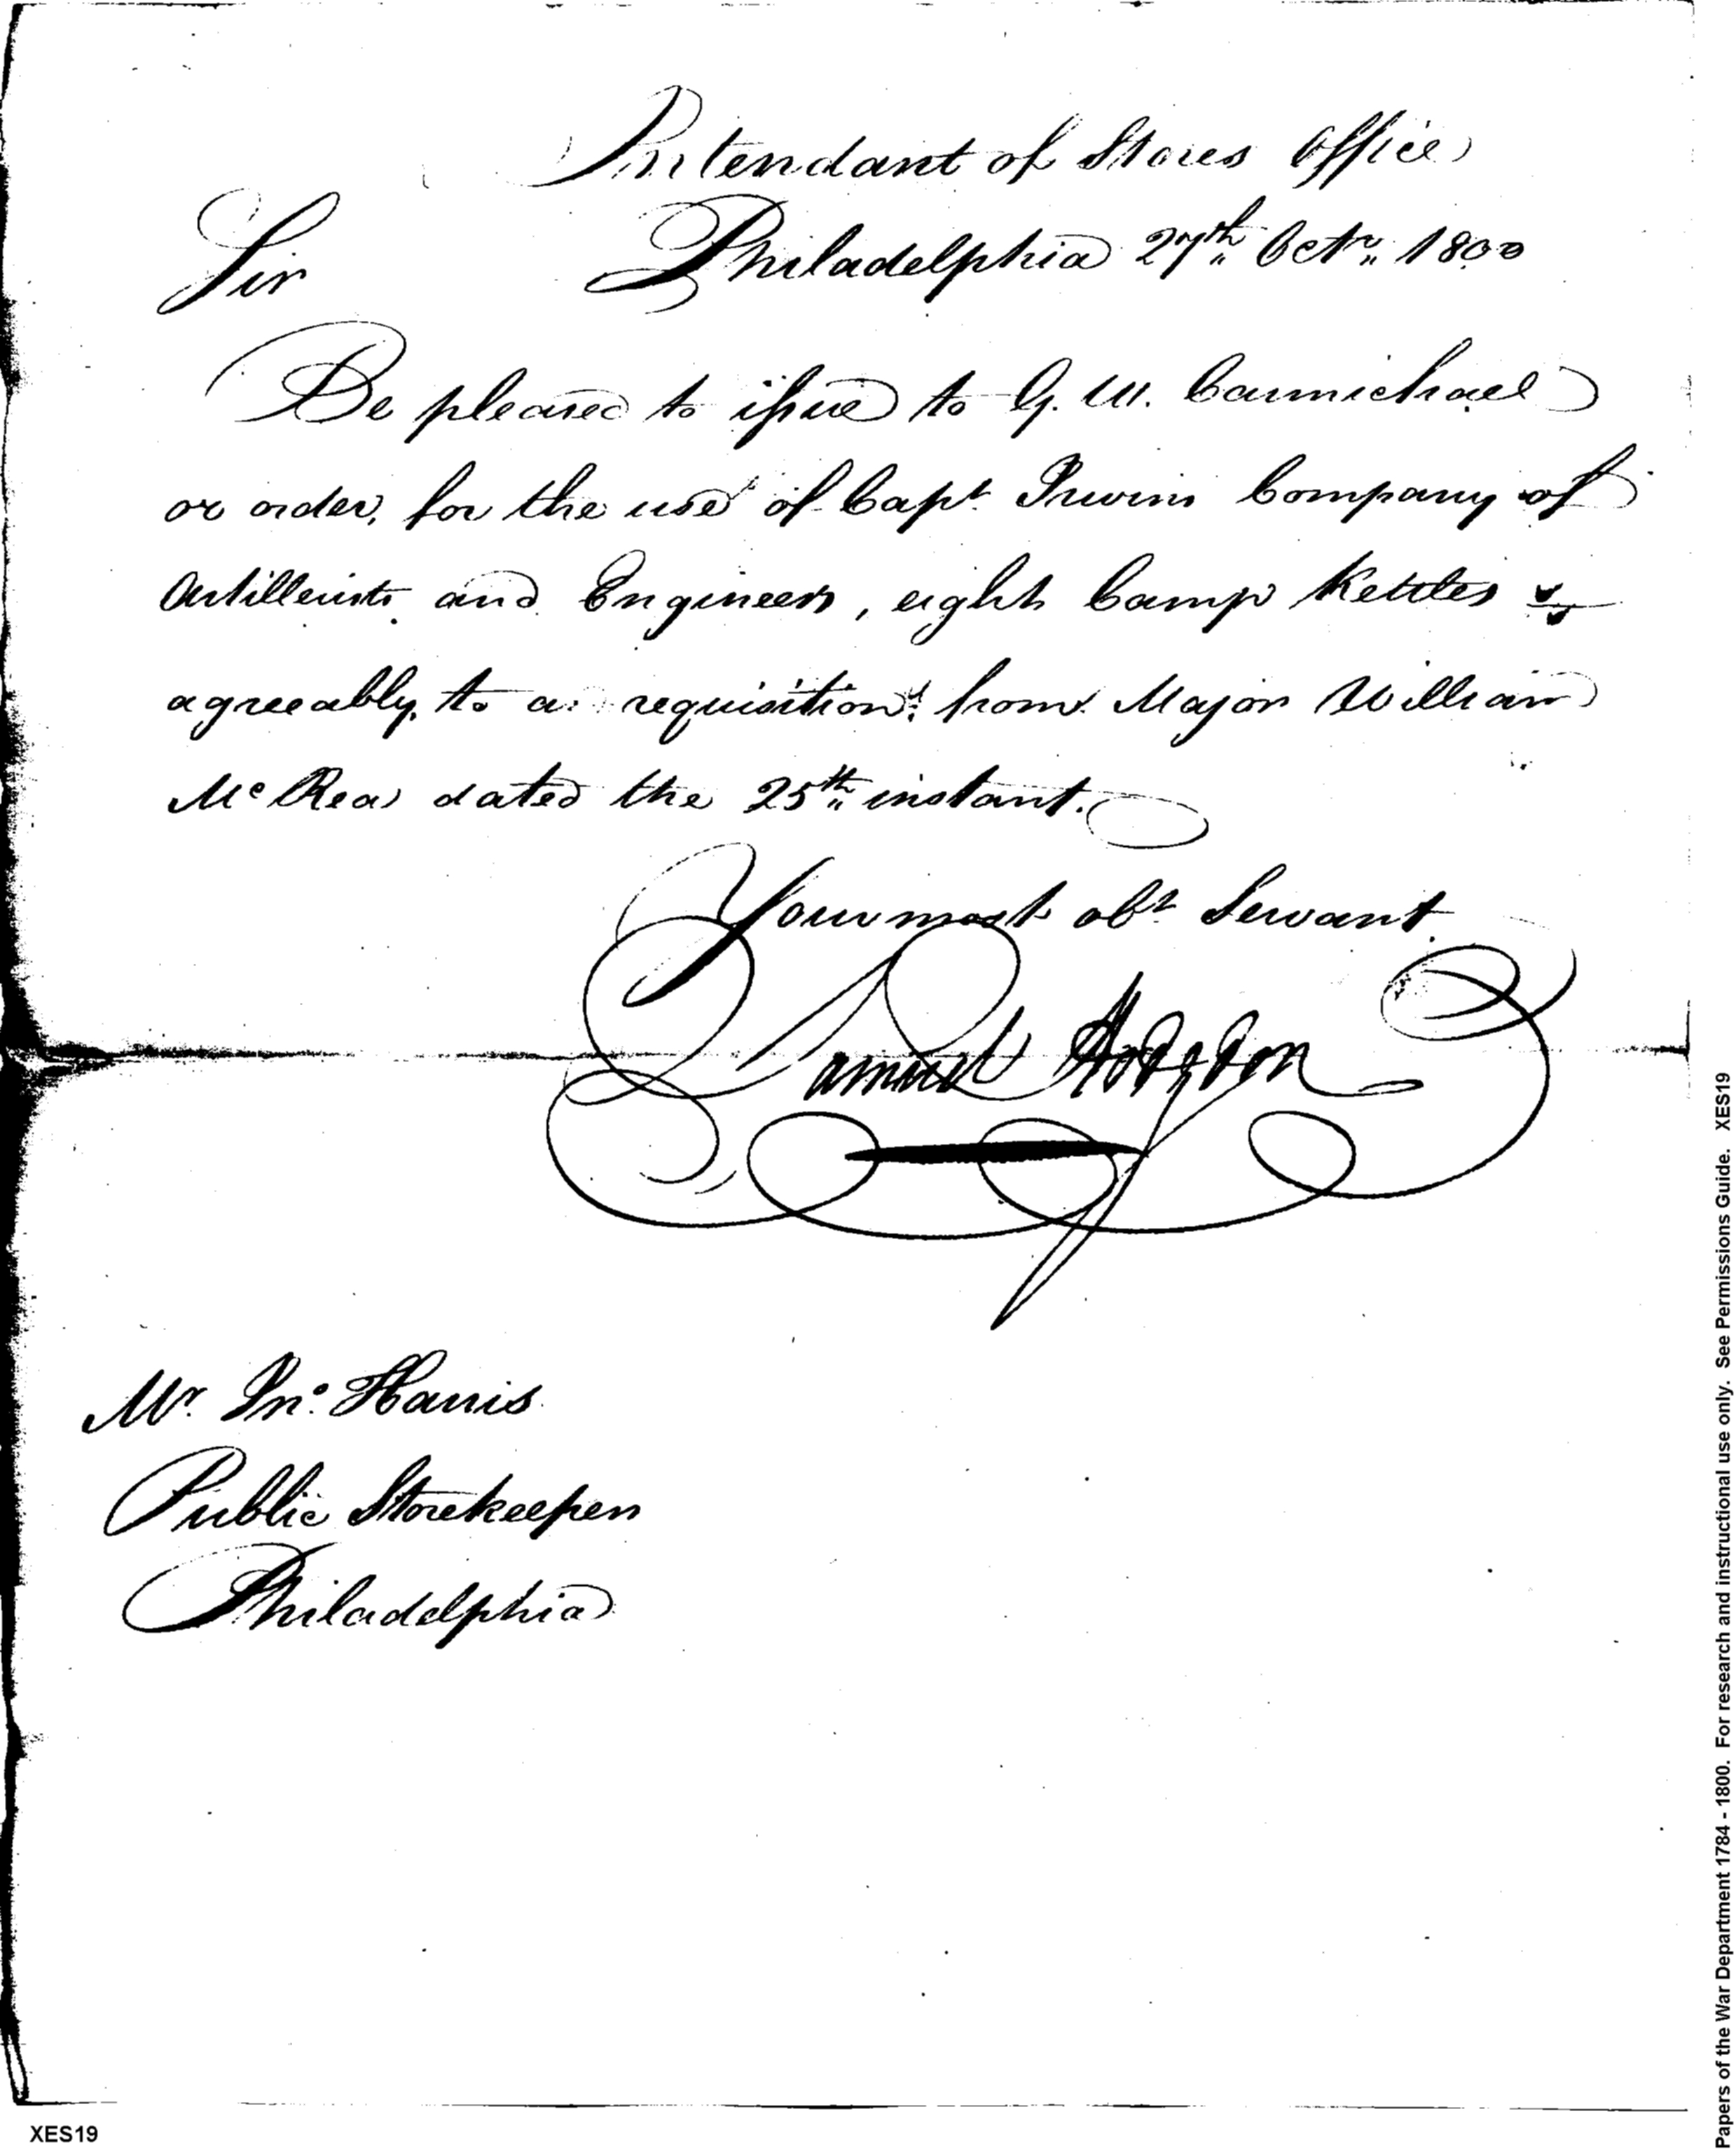 Intendant of Stores Office
Philadelphia 27th Octr 1800
Sir
Be pleased to issue to G. W. Carmichael
or order, for the use of Capt. Irwins Company of
Artillerists and Engineers, eight Camp Kettles
agreeably to a requisition from Major William
McRea dated the 25th instant.
Your most obt Servant
Samuel Hodgdon
Mr. Jno. Harris
Public Storekeeper
Philadelphia
XES19
Papers of the War Department 1784 - 1800. For research and instructional use only. See Permissions Guide. XES19